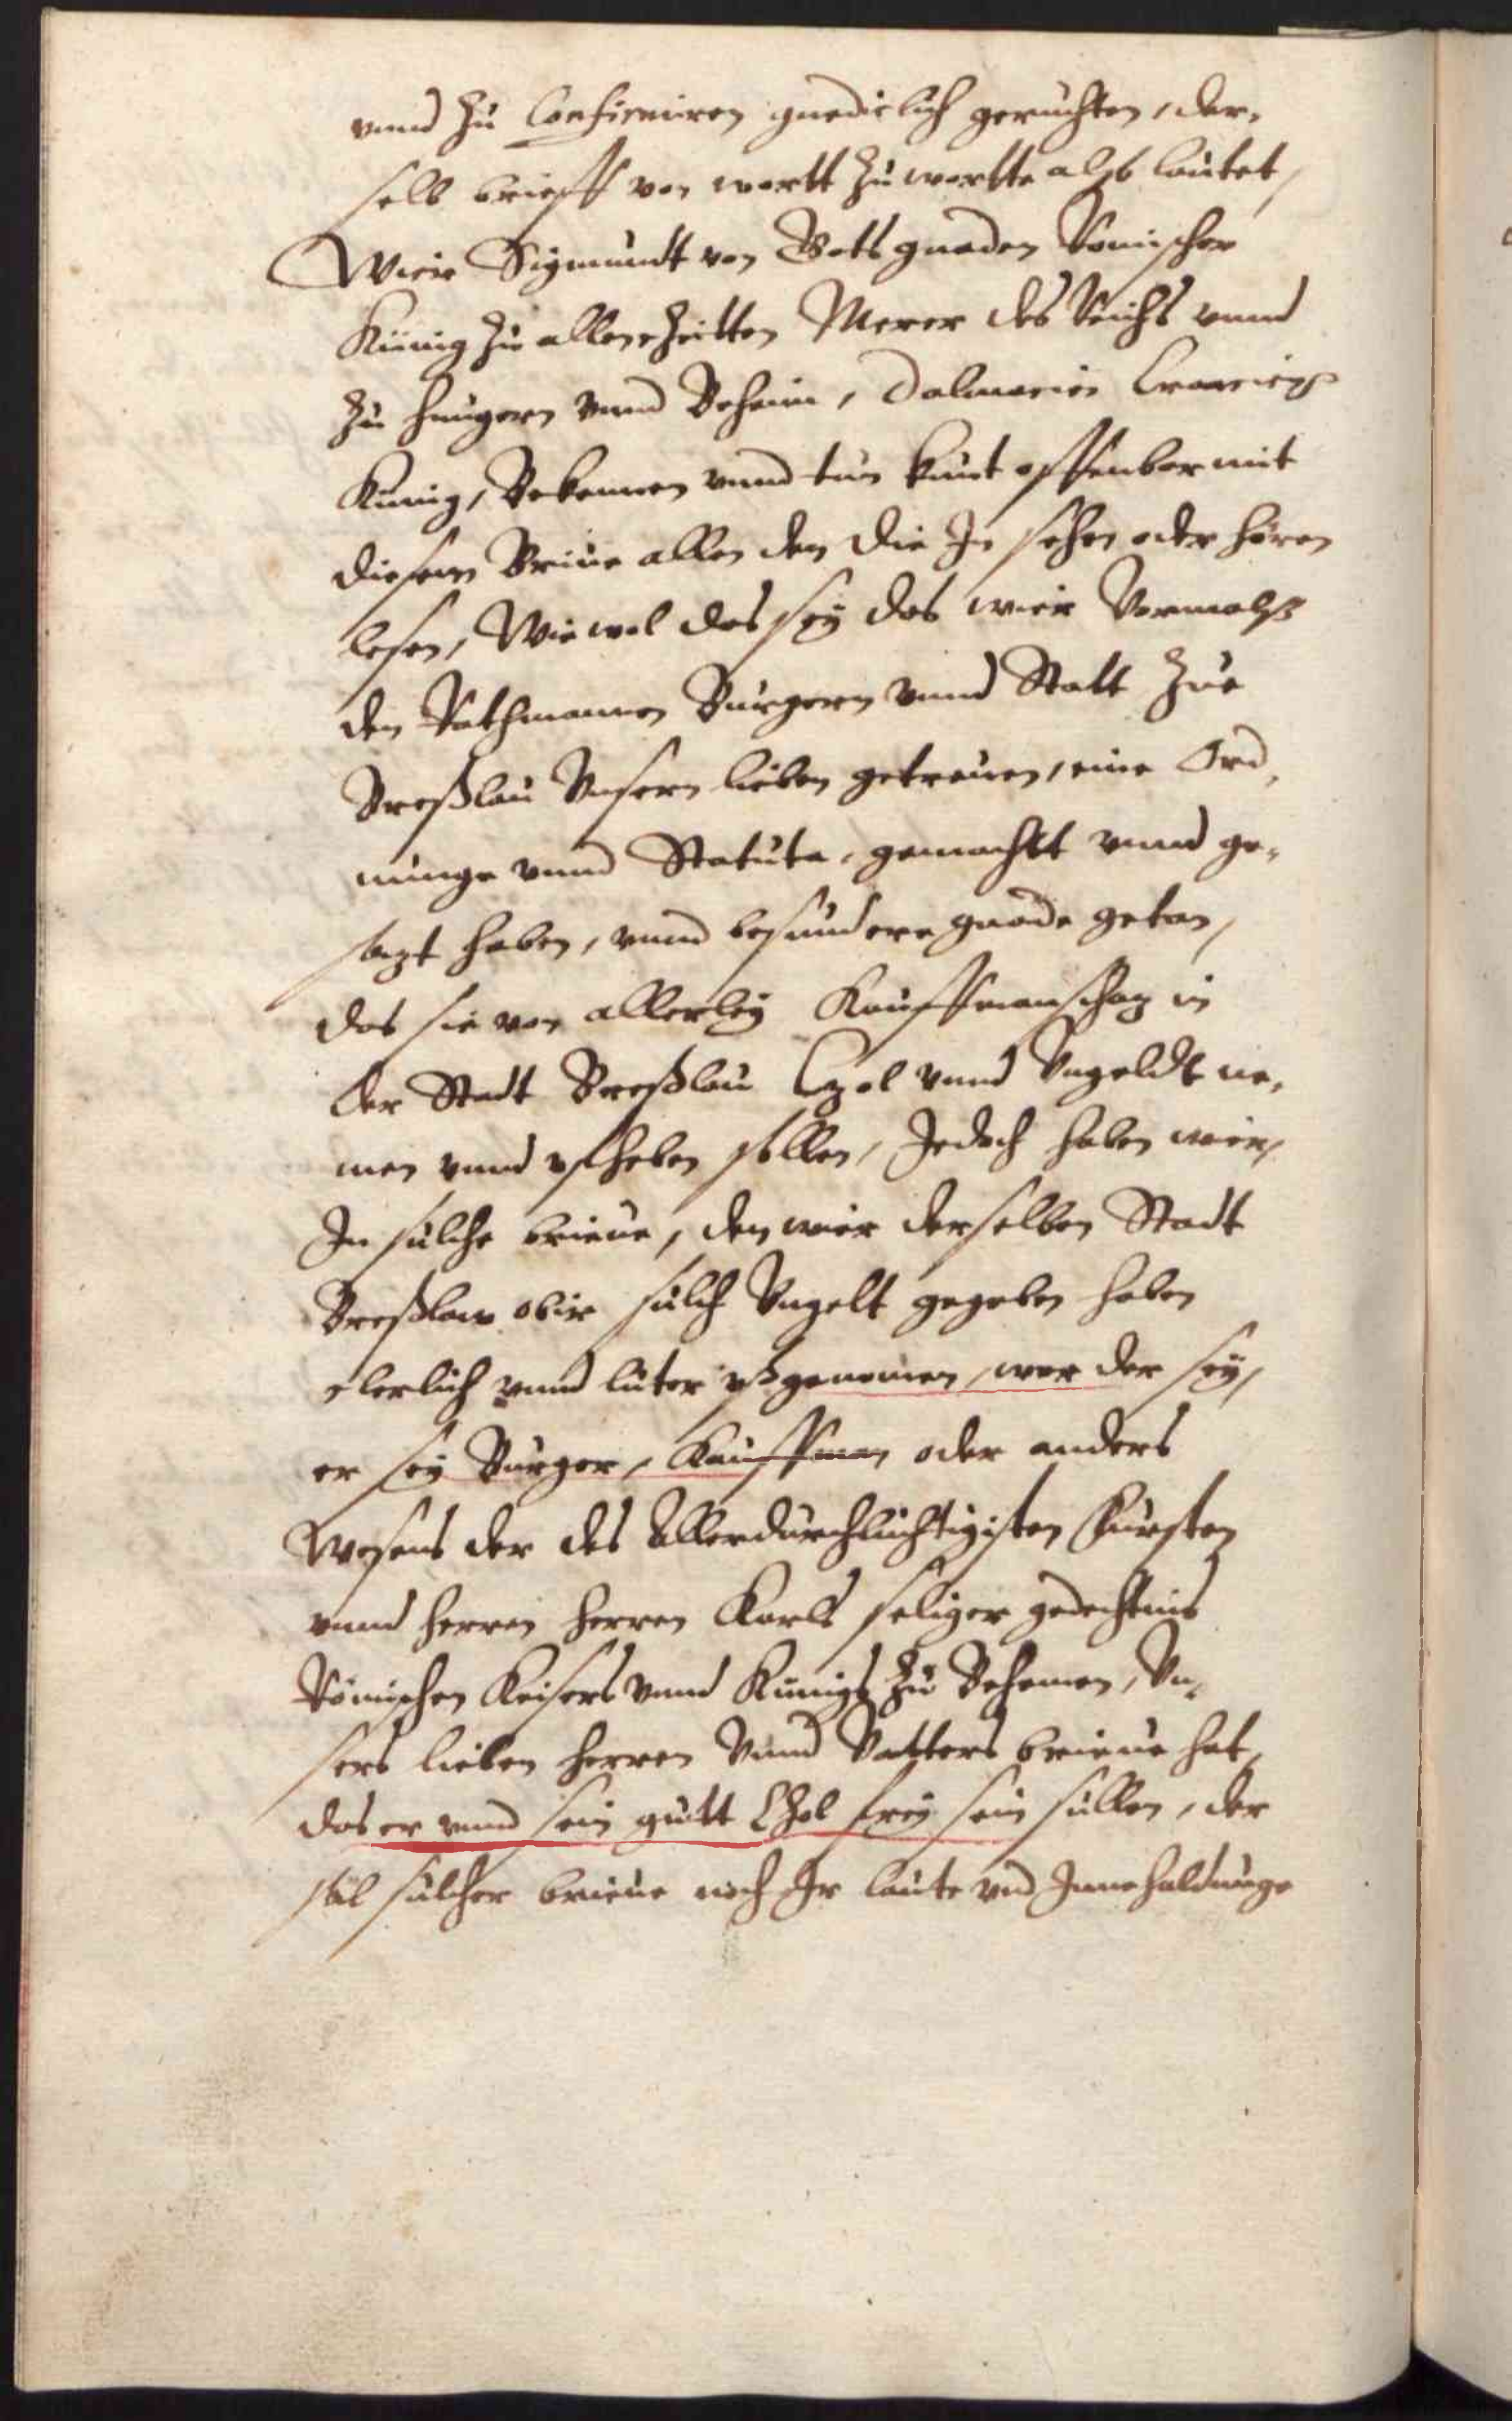 vnnd zu Confirmiren gnediclich geruchten, der,
selb brieff von wortt zu wortte alß lautet,
Wier Sigmundt von Gots gnaden Römischer
Künig zu allen Zeitten Merer des Reichs vnnd
zu Hungern vnnd Beheim, Dalmacien Croacien
Kunig, Bekennen vnnd tun kunt offenbar mit
diesem Brieue allen den die In sehen oder hören
lesen, Wie wol das sey das wier Vormalß
den Rathmannen Burgern vnnd Statt Zue
Breßlau Vnsern lieben getreuen, eine Ord,
nunge vnnd Statuta, gemachtt vnnd ge,
sazt haben, vnnd besundere gnade getan,
das sie von allerley Kauffmanschaz in
der Stadt Breßlau Czol vnnd Vngeldt ne,
men vnnd vfheben sollen, Jedoch haben wier,
In sulche brieue, den wier derselben Stadt
Breßlaw obir sulch Vngelt gegeben haben
clerlich vnnd luter vßgenomen, wer der sey,
er sey Burger, Kauffman oder anders
Wesens der des Allerdurchluchtigisten Fursten
vnnd Herren Herren Karls seliger gedechtnis
Römischen Keisers vnnd Kunigs zu Behemen, Vn,
sers lieben Herren Vnnd Vatters brieue hat,
das er vnnd sein gutt Zhol frey sein sullen, der
sol sulcher brieue noch Ir laute vnd Innehaldunge